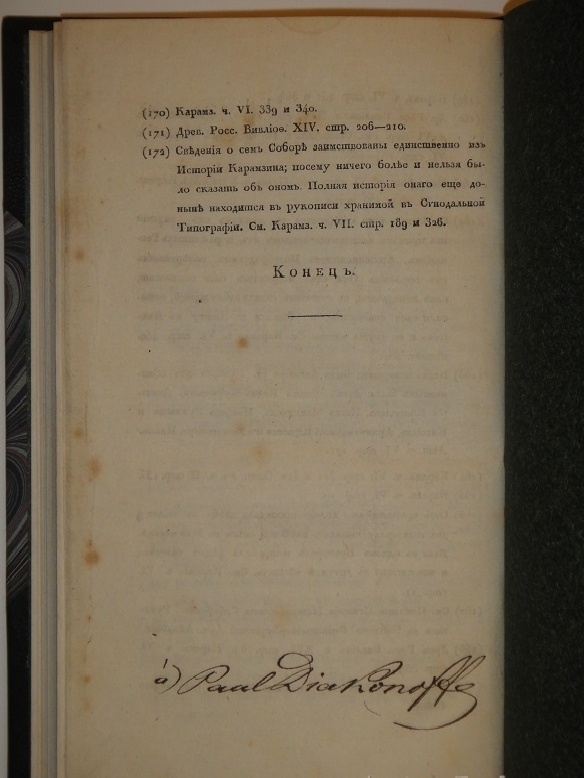 (170) Карамз. ч. VI. 339 и 340.
(171) Древ. Росс. Вивліоѳ. XIV. стр. 206—210.
(172) Свѣденія о семъ Соборѣ заимствованы единственно изъ
Исторіи Карамзина; посему ничего болѣе и нельзя бы-
ло сказать объ ономъ. Полная исторія онаго еще до-
нынѣ находится въ рукописи хранимой въ Сѵнодальной
Типографіи. См. Карамз. ч. VII. стр. 189 и 326.
Конецъ.
á) Paul Diakonoff